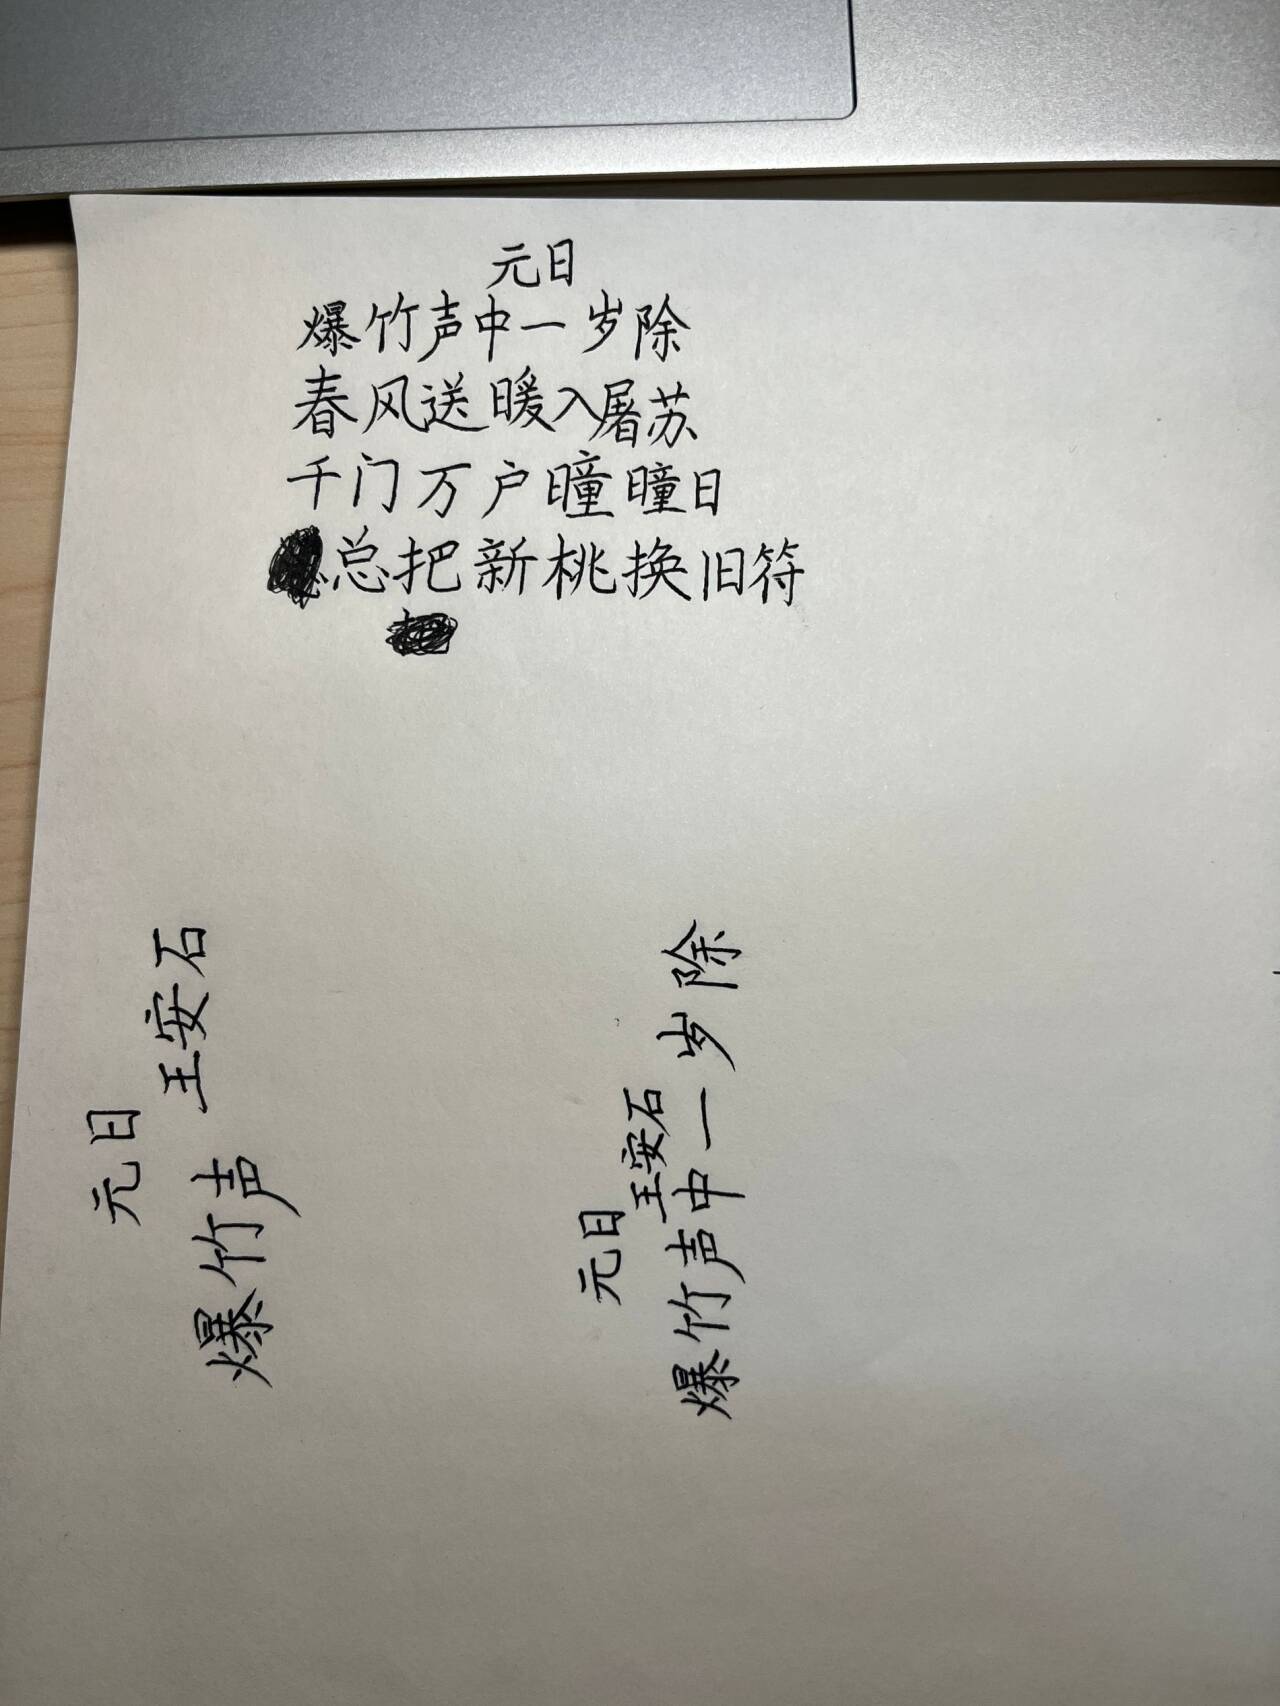 元日
爆竹声中一岁除
春风送暖入屠苏
千门万户曈曈日
总把新桃换旧符
元日
王安石
爆竹声
元日
王安石
爆竹声中一岁除